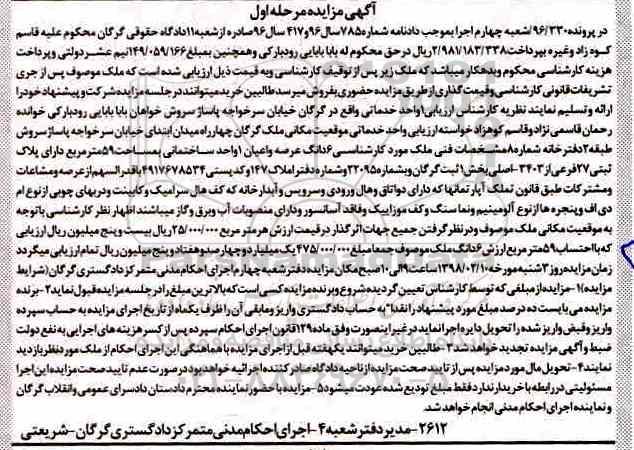 آگهی مزایده مرحله اول
در پرونده ۹۶/۳۳۰/شعبه چهارم اجرا بموجب دادنامه شماره ۷۸۵ سال ۹۶ و ۴۱۷ سال ۹۶ صادره از شعبه ۱۱ دادگاه حقوقی گرگان محکوم علیه قاسم
کوه زاد و غیره بپرداخت ۲/۹۸۱/۱۸۳/۳۳۸ ریال در حق محکوم له بابا بابایی رودبارکی و همچنین بمبلغ ۱۴۹/۰۵۹/۱۶۶ نیم عشر دولتی و پرداخت
هزینه کارشناسی محکوم و بدهکار میباشد که ملک زیر پس از توقیف کارشناسی و به قیمت ذیل ارزیابی شده است که ملک موصوف پس از جری
تشریفات قانونی کارشناسی و قیمت گذاری از طریق مزایده حضوری بفروش میرسد طالبین خرید میتوانند در جلسه مزایده شرکت و پیشنهاد خود را
ارائه و تسلیم نمایند نظریه کارشناس ارزیابی ۱واحد خدماتی واقع در گرگان خیابان سرخواجه پاساژ سروش خواهان بابا بابایی رودبارکی خوانده
رحمان قاسمی نژاد و قاسم کوهزاد خواسته ارزیابی واحد خدماتی موقعیت مکانی ملک گرگان چهارراه میدان ابتدای خیابان سرخواجه پاساژ سروش
طبقه ۲ دفترخانه شماره ۸ مشخصات فنی ملک مورد کارشناسی ۶دانگ عرصه و اعیان ۱واحد ساختمانی بمساحت ۵۹متر مربع دارای پلاک
ثبتی ۲۷ فرعی از ۳۴۰۳-اصلی بخش ۱ ثبت گرگان و بشماره ۲۲۰۹۵ و شماره دفتر املاک ۱۴۷ و کد پستی ۴۹۱۷۶۷۸۵۳۴ باقدرالسهم از عرصه و مشاعات
و مشترکات طبق قانون تملک آپارتمانها که دارای دو اتاق و هال ورودی و سرویس و آبدارخانه که کف هال سرامیک و کابینت و دربهای چوبی از نوع ام
دی اف و پنجره ها از نوع آلومینیم و نما سنگ و کف موزاییک و فاقد آسانسور و دارای منصوبات آب و برق و گاز میباشند اظهار نظر کارشناسی با توجه
به موقعیت مکانی ملک موصوف و در نظر گرفتن جمیع جهات اثر گذار در قیمت ارزش هر متر مربع ۲۵/۰۰۰/۰۰۰ ریال بیست و پنج میلیون ریال ارزیابی
که با احتساب ۵۹متر مربع ارزش ۶دانگ ملک موصوف جمعا مبلغ ۱/۴۷۵/۰۰۰/۰۰۰ یک میلیارد و چهارصد و هفتاد و پنج میلیون ریال تمام ارزیابی میگردد
زمان مزایده روز ۳شنبه مورخه ۱۳۹۸/۰۲/۱۰ ساعت ۹ الی ۱۰ صبح مکان مزایده دفتر شعبه چهارم اجرای احکام مدنی متمرکز دادگستری گرگان (شرایط
مزایده)۱-مزایده از مبلغی که توسط کارشناس تعیین گردیده شروع و برنده مزایده کسی است که بالاترین مبلغ را در جلسه مزایده قبول نماید ۲-برنده
مزایده می بایست ده درصد مبلغ مورد پیشنهاد را نقدا" به حساب دادگستری واریز و مابقی آن را ظرف یکماه از تاریخ اجرای مزایده به حساب سپرده
واریز و قبض واریز شده را تحویل دایره اجرا نماید در غیر اینصورت وفق ماده ۱۲۹ قانون اجرای احکام سپرده پس از کسر هزینه های اجرایی به نفع دولت
ضبط و آگهی مزایده تجدید خواهد شد ۳-طالبین خرید میتوانند یکهفته قبل از اجرای مزایده با هماهنگی این اجرای احکام از ملک مورد نظر بازدید
نمایند ۴-تحویل مال مورد مزایده پس از تایید صحت مزایده از ناحیه دادگاه صادر کننده اجرائیه خواهد بود در صورت عدم تایید صحت مزایده این اجرا
مسئولیتی در رابطه با خریدار ندارد فقط مبلغ تودیع شده عودت میشود ۵-مزایده با حضور نماینده محترم دادستان دادسرای عمومی و انقلاب گرگان
و نماینده اجرای احکام مدنی انجام خواهد شد.
۲۶۱۲-مدیر دفتر شعبه ۴-اجرای احکام مدنی متمرکز دادگستری گرگان-شریعتی